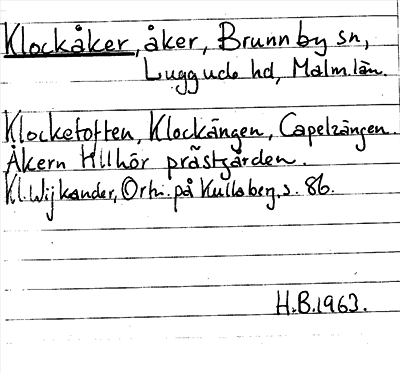 Klockåker, åker, Brunnby sn,
Luggude hd, Malm.län.
Klocketoften, Klockängen, Capelzängen.
Åkern tillhör prästgården.
Kl. Wijkander, Ortn. på Kullaberg, s. 86.
H.B.1963.